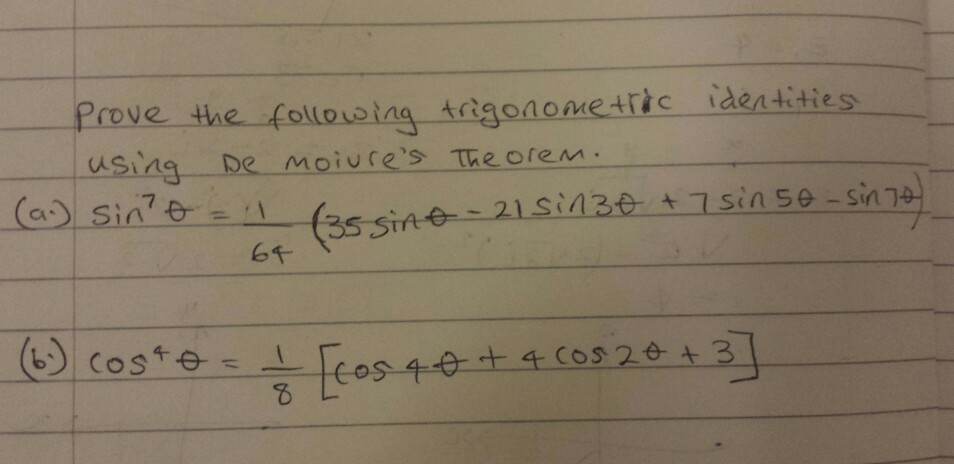 Prove the following trigonometric identities
using De Moivre's Theorem.
(a.) sin⁷θ = 1/64 (35 sinθ - 21 sin3θ + 7 sin5θ - sin7θ)
(b.) cos⁴θ = 1/8 [cos4θ + 4 cos2θ + 3]